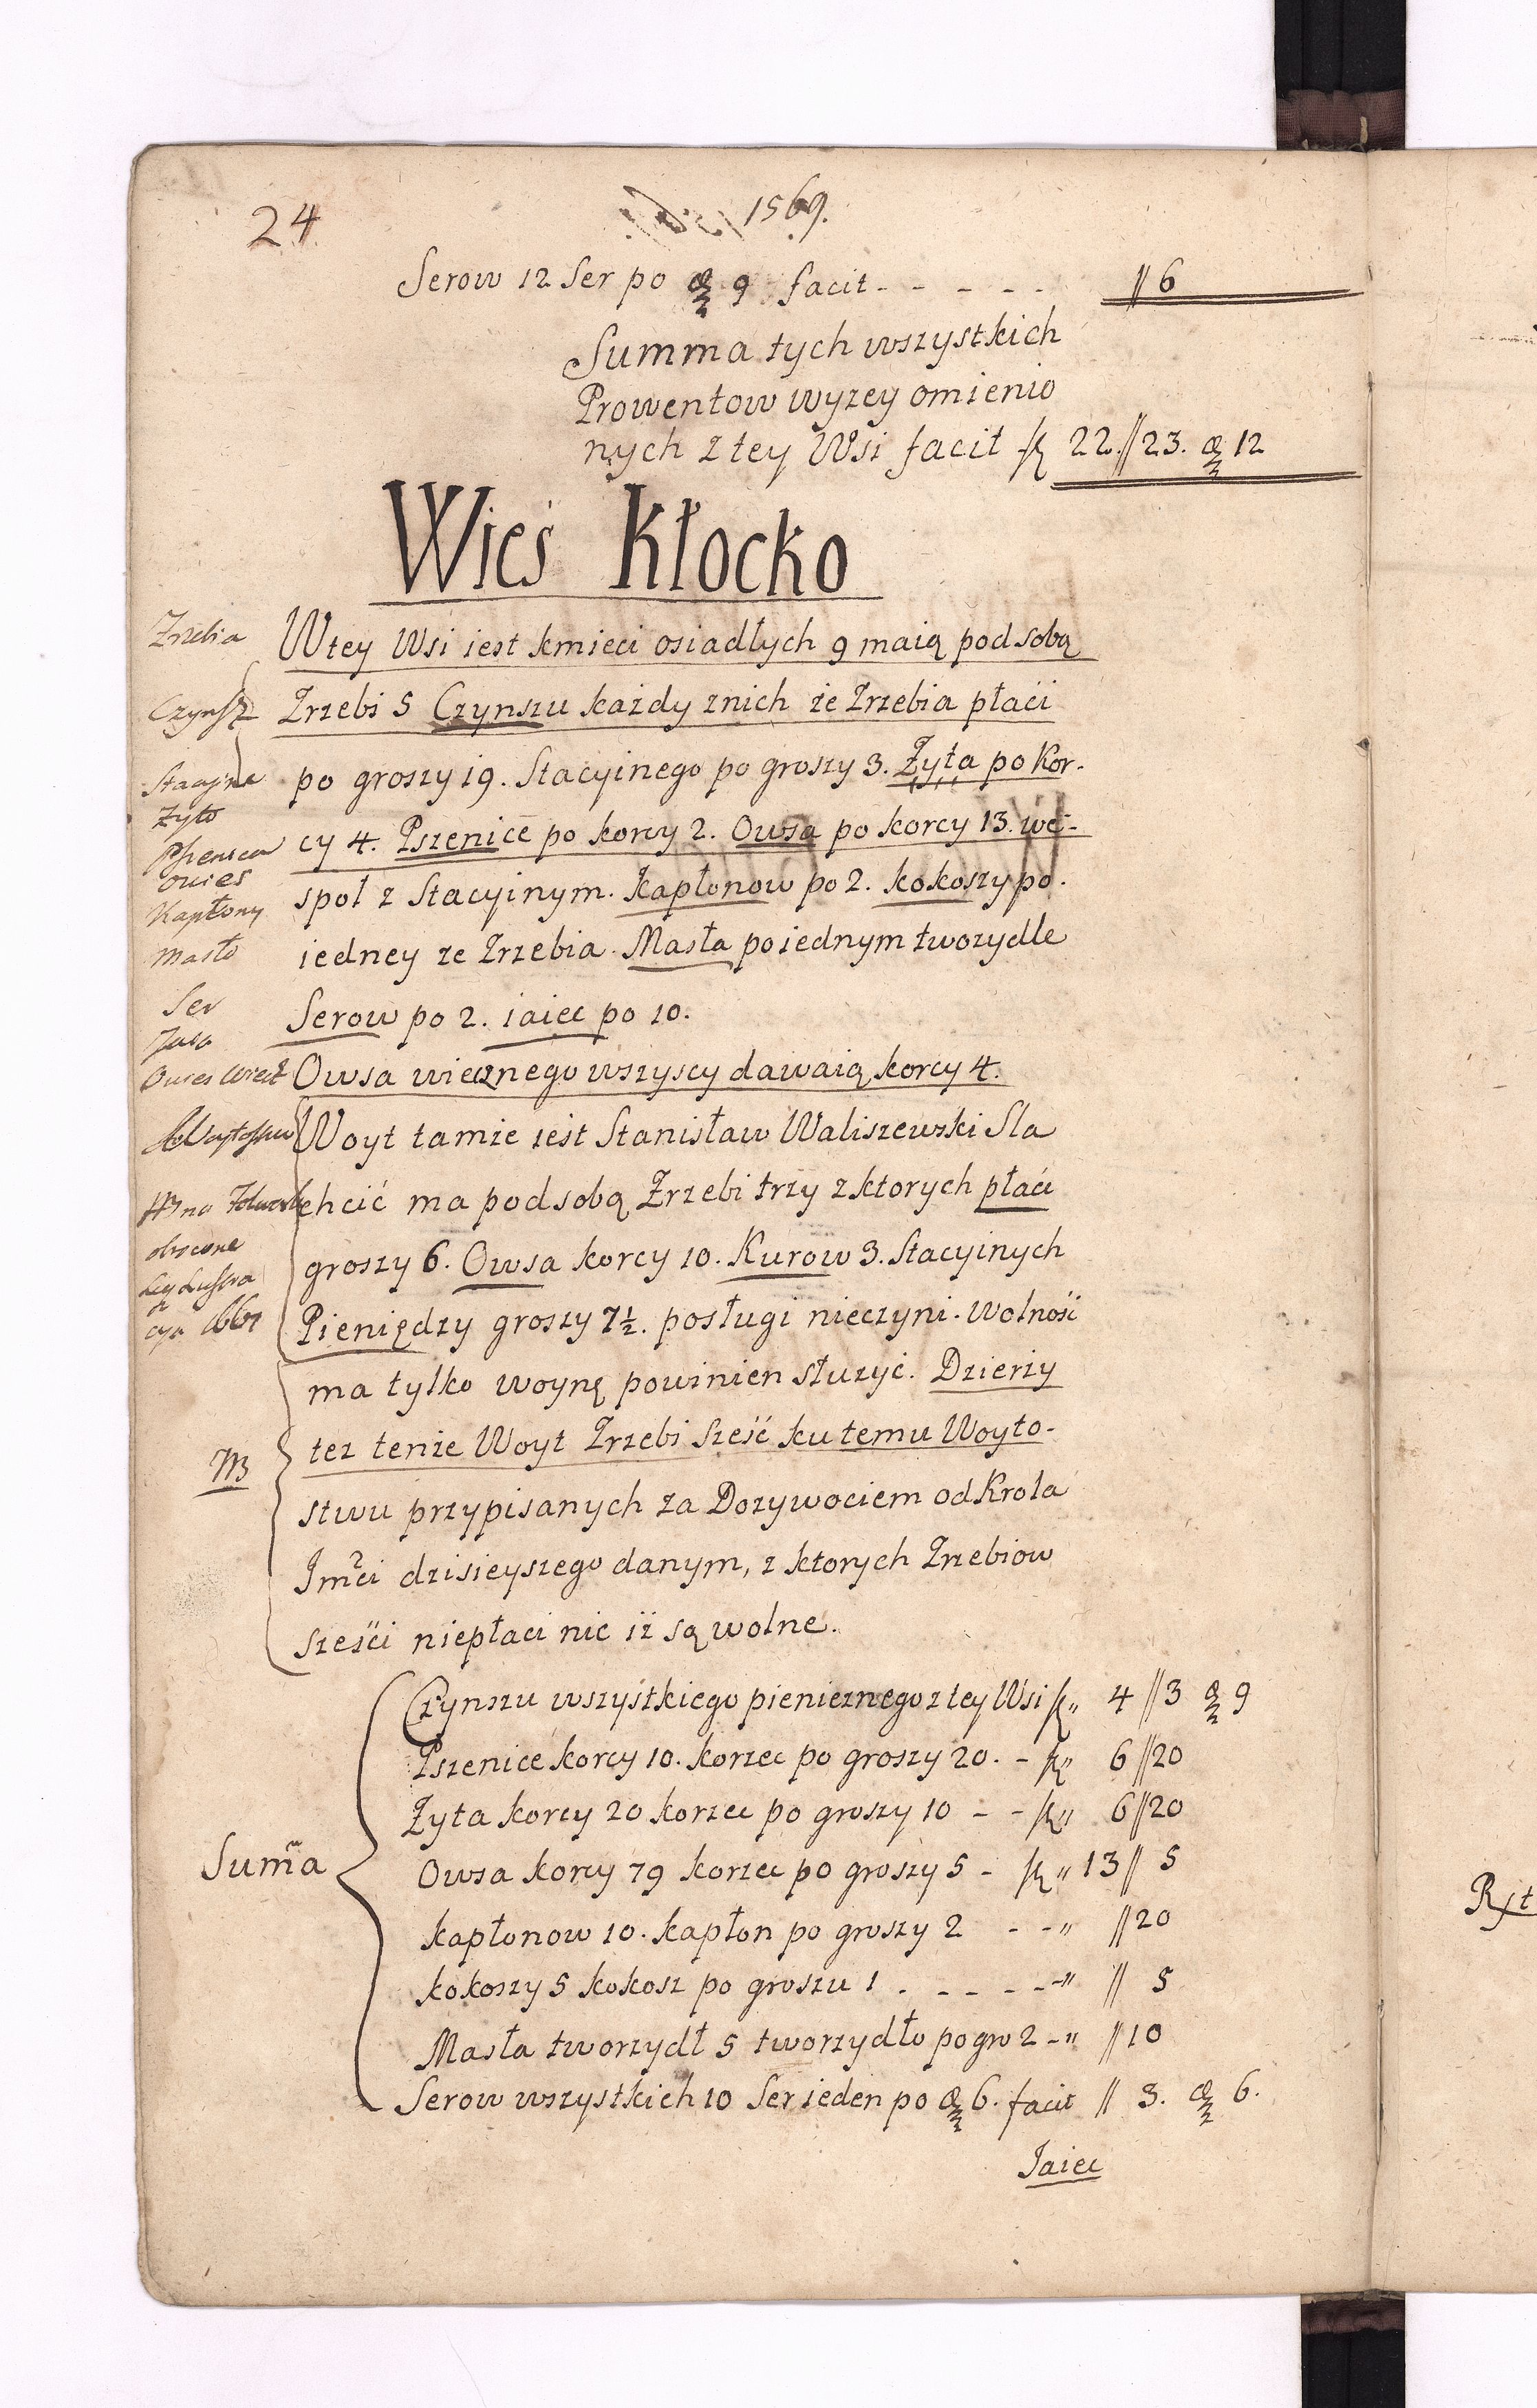 24
1569.
Serow 12 Ser po ₰ 9 facit - - - - - // 6
Summa tych wszystkich
Prowentow wyzey omienio
nych z tey Wsi facit fl 22. // 23. ₰ 12
Wieś Kłocko
Zrzebia
W tey Wsi iest kmieci osiadłych 9 maią pod sobą
Czynsz
Zrzebi 5 Czynszu każdy z nich ze Zrzebia płaci
Stacyjne
po groszy 19. Stacyinego po groszy 3. Zyta po Kor-
Zyto
Pszenica
cy 4. Pszenice po korcy 2. Owsa po korcy 13. we-
Owies
Kapłony
społ z Stacyinym. Kapłonow po 2. kokoszy po
Masło
iedney ze Zrzebia. Masła po iednym tworzydle
Ser
Serow po 2. iaiec po 10.
Jaia
Owies wiecz
Owsa wiecznego wszyscy dawaią korcy 4.
Woyt tamże iest Stanisław Waliszewski Sla
chcić ma pod sobą Zrzebi trzy z ktorych płaci
obrocone
groszy 6. Owsa korcy 10. Kurow 3. Stacyinych
Pieniędzy groszy 7½. posługi nieczyni. Wolność
ma tylko woynę powinien służyć. Dzierży
też tenże Woyt Zrzebi sześć ku temu Woyto-
NB
stwu przypisanych za Dozywociem od Krola
Jmci dzisieyszego danym, z ktorych Zrzebiow
sześci niepłaci nic iż są wolne.
Czynszu wszystkiego pienieznego z tey Wsi fl " 4 // 3 ₰ 9
Pszenice korcy 10. korzec po groszy 20. - fl " 6 // 20
Zyta korcy 20 korzec po groszy 10 - - fl " 6 // 20
Sum̃a
Owsa korcy 79 korzec po groszy 5 - fl " 13 // 5
Kapłonow 10. Kapłon po groszy 2 - - " // 20
kokoszy 5 kokosz po groszu 1 . - - - - - " // 5
Masła tworzydł 5 tworzydło po gro 2 - " // 10
Serow wszystkich 10 Ser ieden po ₰ 6. facit // 3. ₰ 6.
Iaiec